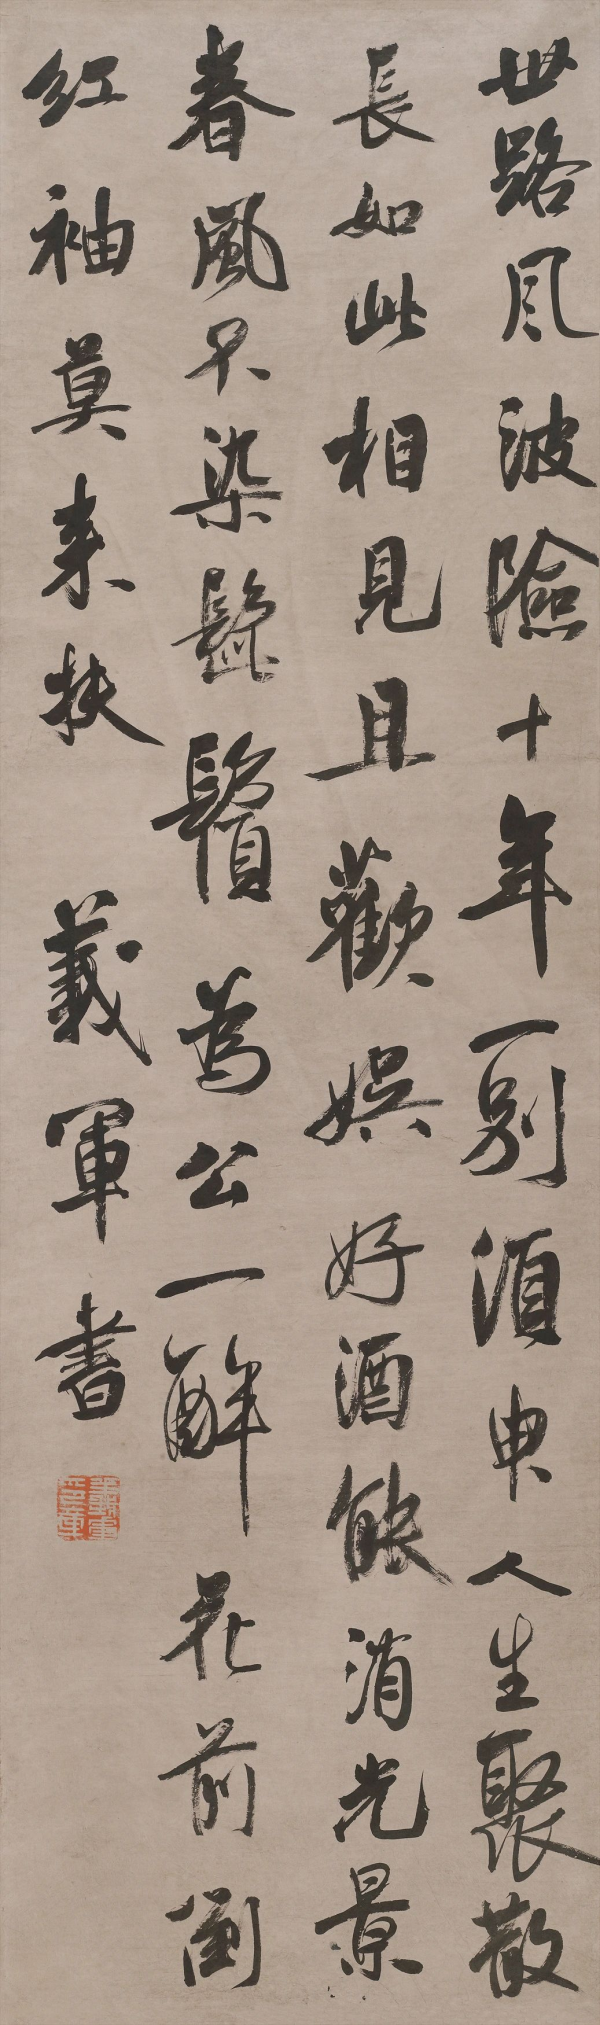 世路風波險十年一別須申人生聚散
長如此相見且歡娛好酒能消光景
春風不染髭鬚為公一醉花前倒
紅袖莫来扶 義軍書